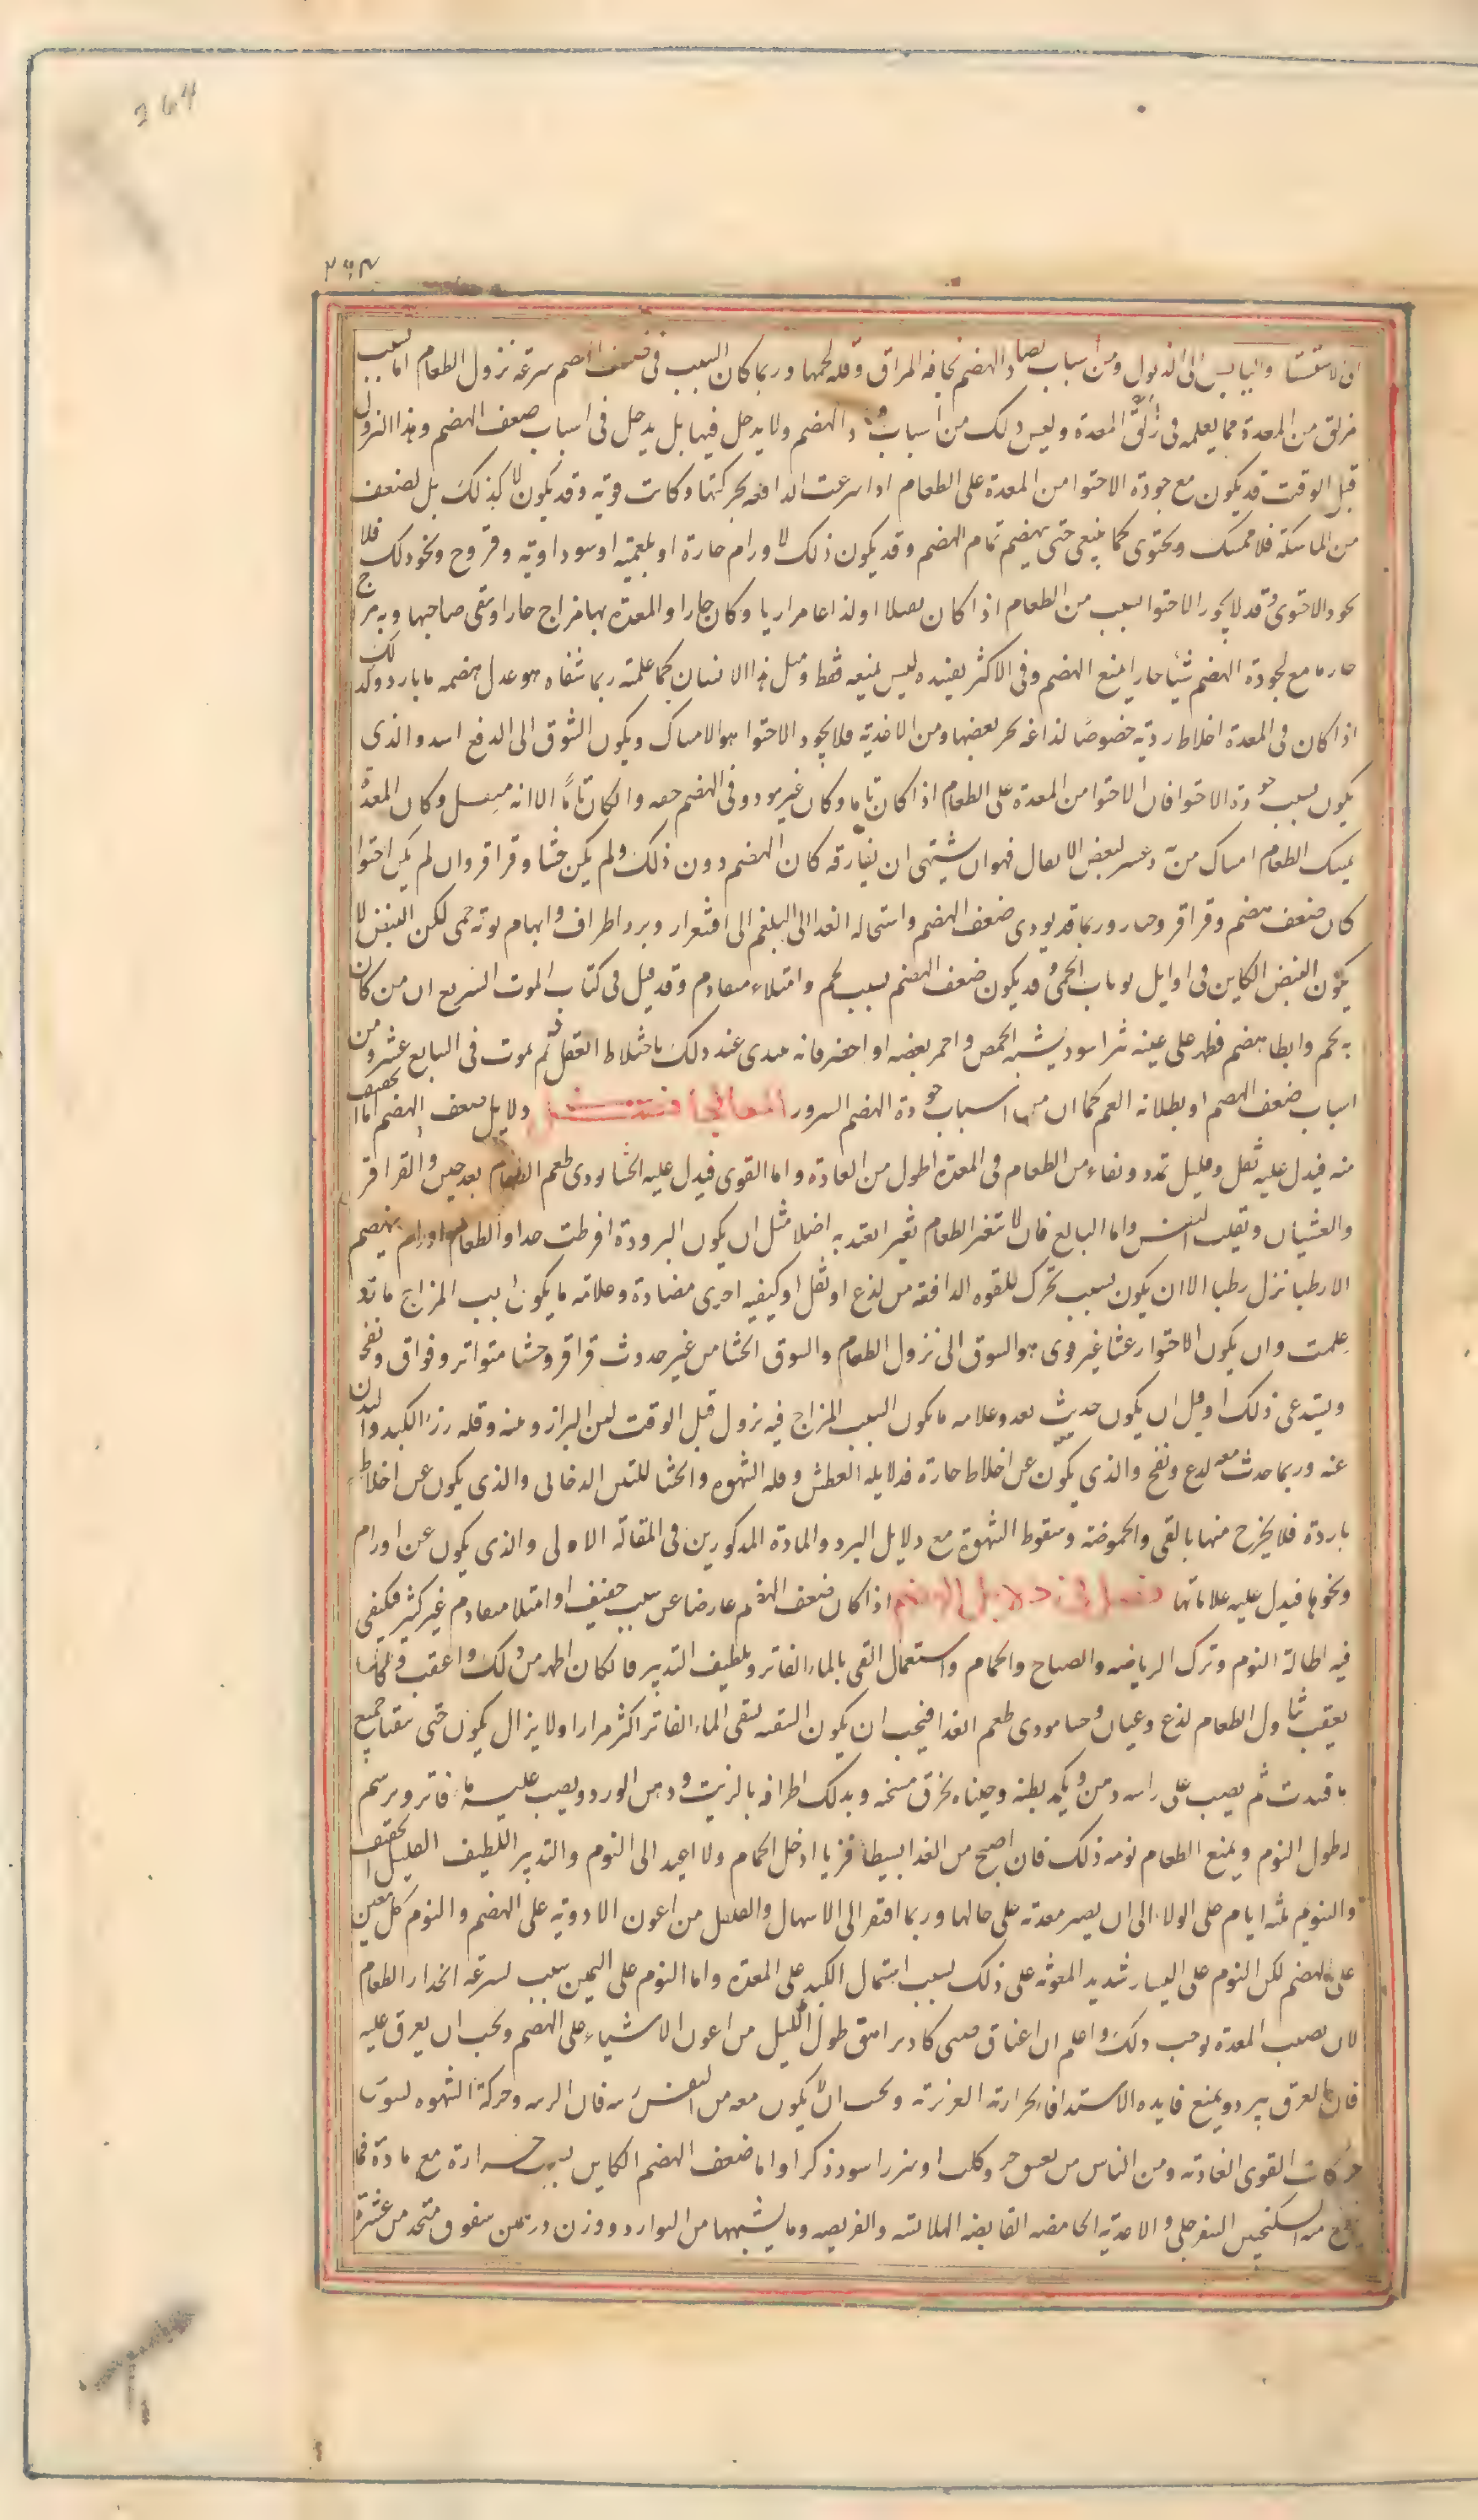 264
۲۶۴
الاستسقا واليابس الى الذبول ومن اسباب فساد الهضم نحافه المراق وقله لحمها وربما كان السبب فى ضعف الهضم سرعة نزول الطعام اما بسبب
مزلق من المعدة مما يعلمه فى زلق المعدة وليس ذلك من اسباب فساد الهضم ولا يدخل فيها بل يدخل فى اسباب ضعف الهضم وهذا النزول
قبل الوقت قد يكون مع جودة الاحتوا من المعدة على الطعام اذا اسرعت الدافعه بحركتها وكانت قوية وقد يكون لا كذلك بل لضعف
من الماسكة فلا تمسك وتحتوى كما ينبغى حتى يهضم تمام الهضم وقد يكون ذلك لاورام حارة او بلغمية او سوداوية وقروح ونحو ذلك فلا
يجود الاحتوى وقد لا يجود الاحتوا بسبب من الطعام اذا كان ثقيلا او لذاعا مراريا وكان حارا والمعدة بها مزاج حار او سقى صاحبها وبه مزاج
حار ما مع لجودة الهضم شيأ حارا منع الهضم وفى الاكثر يفيده ليس يمنعه فقط ومثل هذا الانسان كما علمته ربما شفاه هو عدل هضمه ما بارد وكذلك
اذا كان فى المعدة اخلاط ردية خصوصا لذاعة بعضها ومن الاغذية فلا يجود الاحتوا هو الامساك ويكون الشوق الى الدفع اشد والذى
يكون بسبب جودة الاحتوا فان الاحتوا من المعدة على الطعام اذا كان تاما وكان غير مود وفى الهضم حقه وان كان تاما الا انه مثقل وكان المعدة
يمسك الطعام امساك من بعض الاثقال فهو ان يشتهى ان يفارقه كان الهضم دون ذلك ولم يكن جشا وقراقر وان لم يكن احتوا
كان ضعف هضم وقراقر وجشا وربما قد يودى ضعف الهضم واستحاله الغدا الى البلغم الى اقشعرار وبرد اطراف وايهام نوبة حمى لكن النبض لا
يكون النبض الكاين فى اوايل نوبات الحمى وقد يكون ضعف الهضم بسبب تخم وامتلاء متقادم وقد قيل فى كتاب الموت السريع ان من كان
به تخم وابطا هضم فظهر على عينه بثر اسود يشبه الحمص واحمر بعضه او اخضر فانه يبتدى عند ذلك باختلاط العقل ثم يموت فى السابع عشر ومن
اسباب ضعف الهضم او بطلانه الغم كما ان من اسباب جودة الهضم السرور دلايل ضعف الهضم اما الخفيف
منه فيدل عليه ثقل وقليل تمدد وبقاء من الطعام فى المعدة اطول من العادة واما القوى فيدل عليه الجشا ودى طعم الطعام بعد حين والقراقر
والغثيان وتقلب النفس واما البالغ فان لا يتغير الطعام تغيرا يعتد به اصلا مثل ان يكون البرودة افرطت جدا والطعام اذا لم ينهضم
الا رطبا نزل رطبا الا ان يكون بسبب تحرك للقوه الدافعه من لذع او ثقل او كيفيه اخرى مضادة وعلامة ما يكون بسبب المزاج ما قد
علمت وان يكون الاحتوا رعشا غير قوى هو الشوق الى نزول الطعام والشوق الجشا من غير حدوث قراقر وجشا متواتر وفواق ونفخ
ويستدعى ذلك او قبل ان يكون حدث بعد وعلامه ما يكون السبب المزاج فيه نزول قبل الوقت لين البراز ونتنه وقله رزء الكبد والبدن
عنه وربما حدث معه لذع ونفخ والذى يكون عن اخلاط حارة فدلايله العطش وقله الشهوة والجشا المنتن الدخانى والذى يكون عن اخلاط
باردة فلا يخرج منها بالقى والحموضة وسقوط الشهوة مع دلايل البرد والمادة المذكورين فى المقالة الاولى والذى يكون عن اورام
ونحوها فيدل عليه علاماتها فصل فى اذا كان ضعف الهضم عارضا عن سبب خفيف او امتلا متقادم غير كثير فيكفى
فيه اطالة النوم وترك الرياضه والصياح والحمام واستعمال القى بالماء الفاتر وتلطيف التدبير فان كان اظهر من ذلك واعقب وكان
يعقب تناول الطعام لذع وغثيان وجشا مودى طعم الغدا فيجب ان يكون التنقيه بسقى الماء الفاتر اكثر مرارا ولا يزال يكون حتى يتقيا جميع
ما فسدت ثم يصب على راسه دهن ويكمد بطنه وجنباه بخرق مسخنه ويدلك اطرافه بالزيت ودهن الورد ويصب عليه ماء فاتر ويرسم
له طول النوم ويمنع الطعام يومه ذلك فان اصبح من الغد ابسيطا قريا ادخل الحمام والا اعيد الى النوم والتدبير اللطيف القليل الخفيف
والنوم ثلثة ايام على الولاء الى ان يصير معدته على حالها وربما افتقر الى الاسهال والفلفل من اعون الادوية على الهضم والنوم كل معين
على الهضم لكن النوم على اليسار شديد المعونة على ذلك بسبب اشتمال الكبد على المعدة واما النوم على اليمين سبب لسرعة انحدار الطعام
لان نصب المعدة يوجب ذلك واعلم ان اعناق صبى كاد يراهق طول الليل من اعون الاشياء على الهضم ويجب ان يعرق عليه
فان العرق يبرد ويمنع فايده الاستدفا بحرارته الغريزية ويجب ان يكون معه من النفس فان الريبه وحركة الشهوه يشوش
حركات القوى الغادية ومن الناس من يعتنق جرو كلب او سنور اسود ذكرا واما ضعف الهضم الكاين بسبب حرارة مع مادة فما
ينفع منه السكنجبين السفرجلى والاغدية الحامضه القابضه الهلامية والقريصية وما يشبهها من البوارد ووزن درهمين سفوف متخد من عشرة